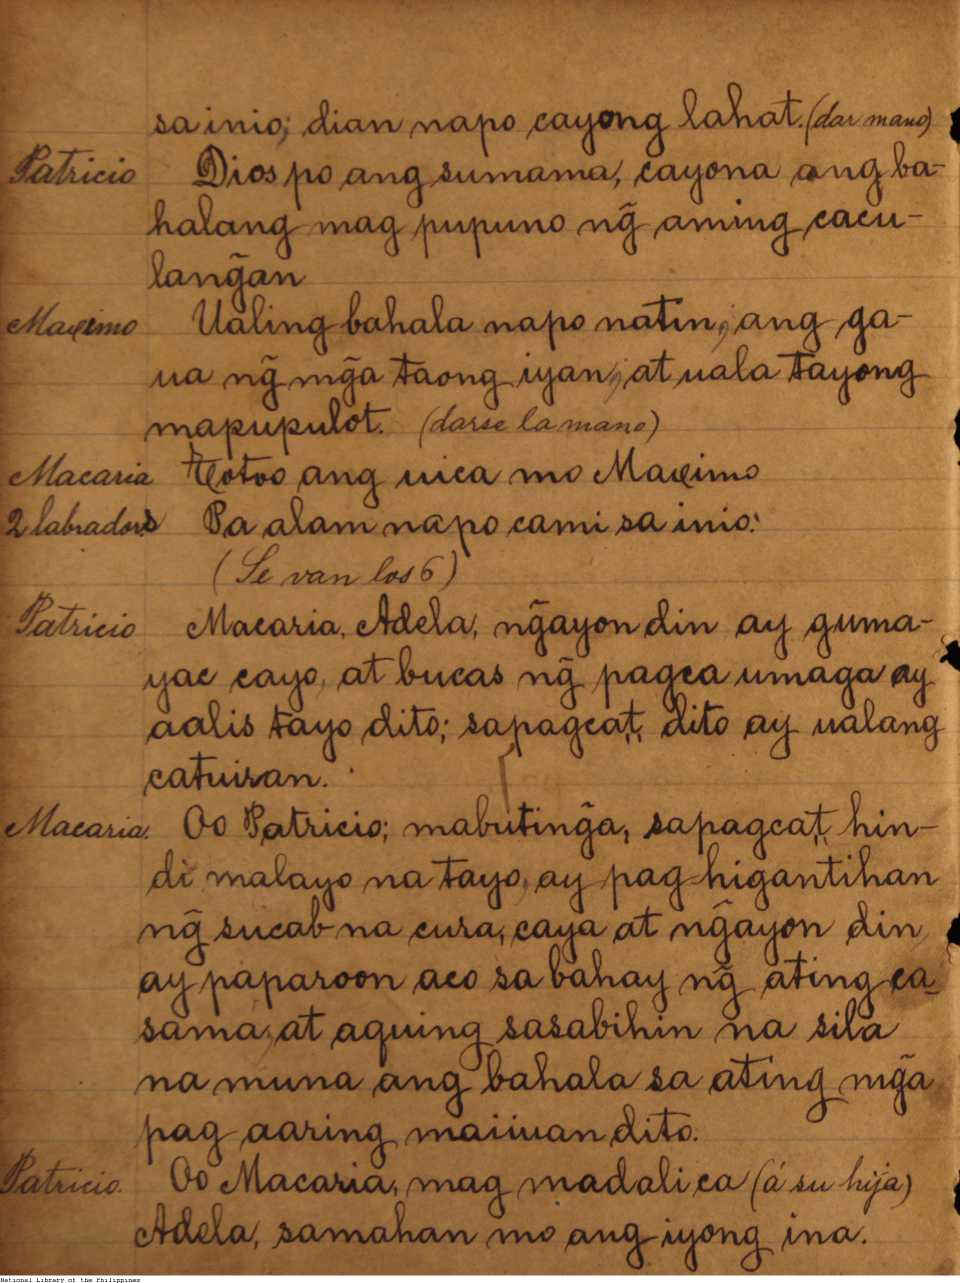 sa inio; dian napo cayong lahat. (dar mano)
Patricio Dios po ang sumama, cayona ang ba-
halang mag pupuno ng̃ aming cacu-
lang̃an
Maximo Ualing bahala napo natin, ang ga-
ua ng̃ mg̃a taong iyan, at uala tayong
mapupulot. (darse la mano)
Macaria Totoo ang uica mo Maximo
2 labradors Pa alam napo cami sa inio.
(Se van los 6)
Patricio Macaria, Adela, ng̃ayon din ay guma-
yac cayo, at bucas ng̃ pagca umaga ay
aalis tayo dito; sapagca,t, dito ay ualang
catuiran.
Macaria. Oo Patricio; mabuting̃a, sapagca,t, hin-
di malayo na tayo, ay pag-higantihan
ng̃ sucab na cura, caya at ng̃ayon din
ay paparoon aco sa bahay ng̃ ating ca-
sama, at aquing sasabihin na sila
na muna ang bahala sa ating mg̃a
pag aaring maiiuan dito.
Patricio. Oo Macaria, mag madali ca (á su hija)
Adela, samahan mo ang iyong ina.
National Library of the Philippines